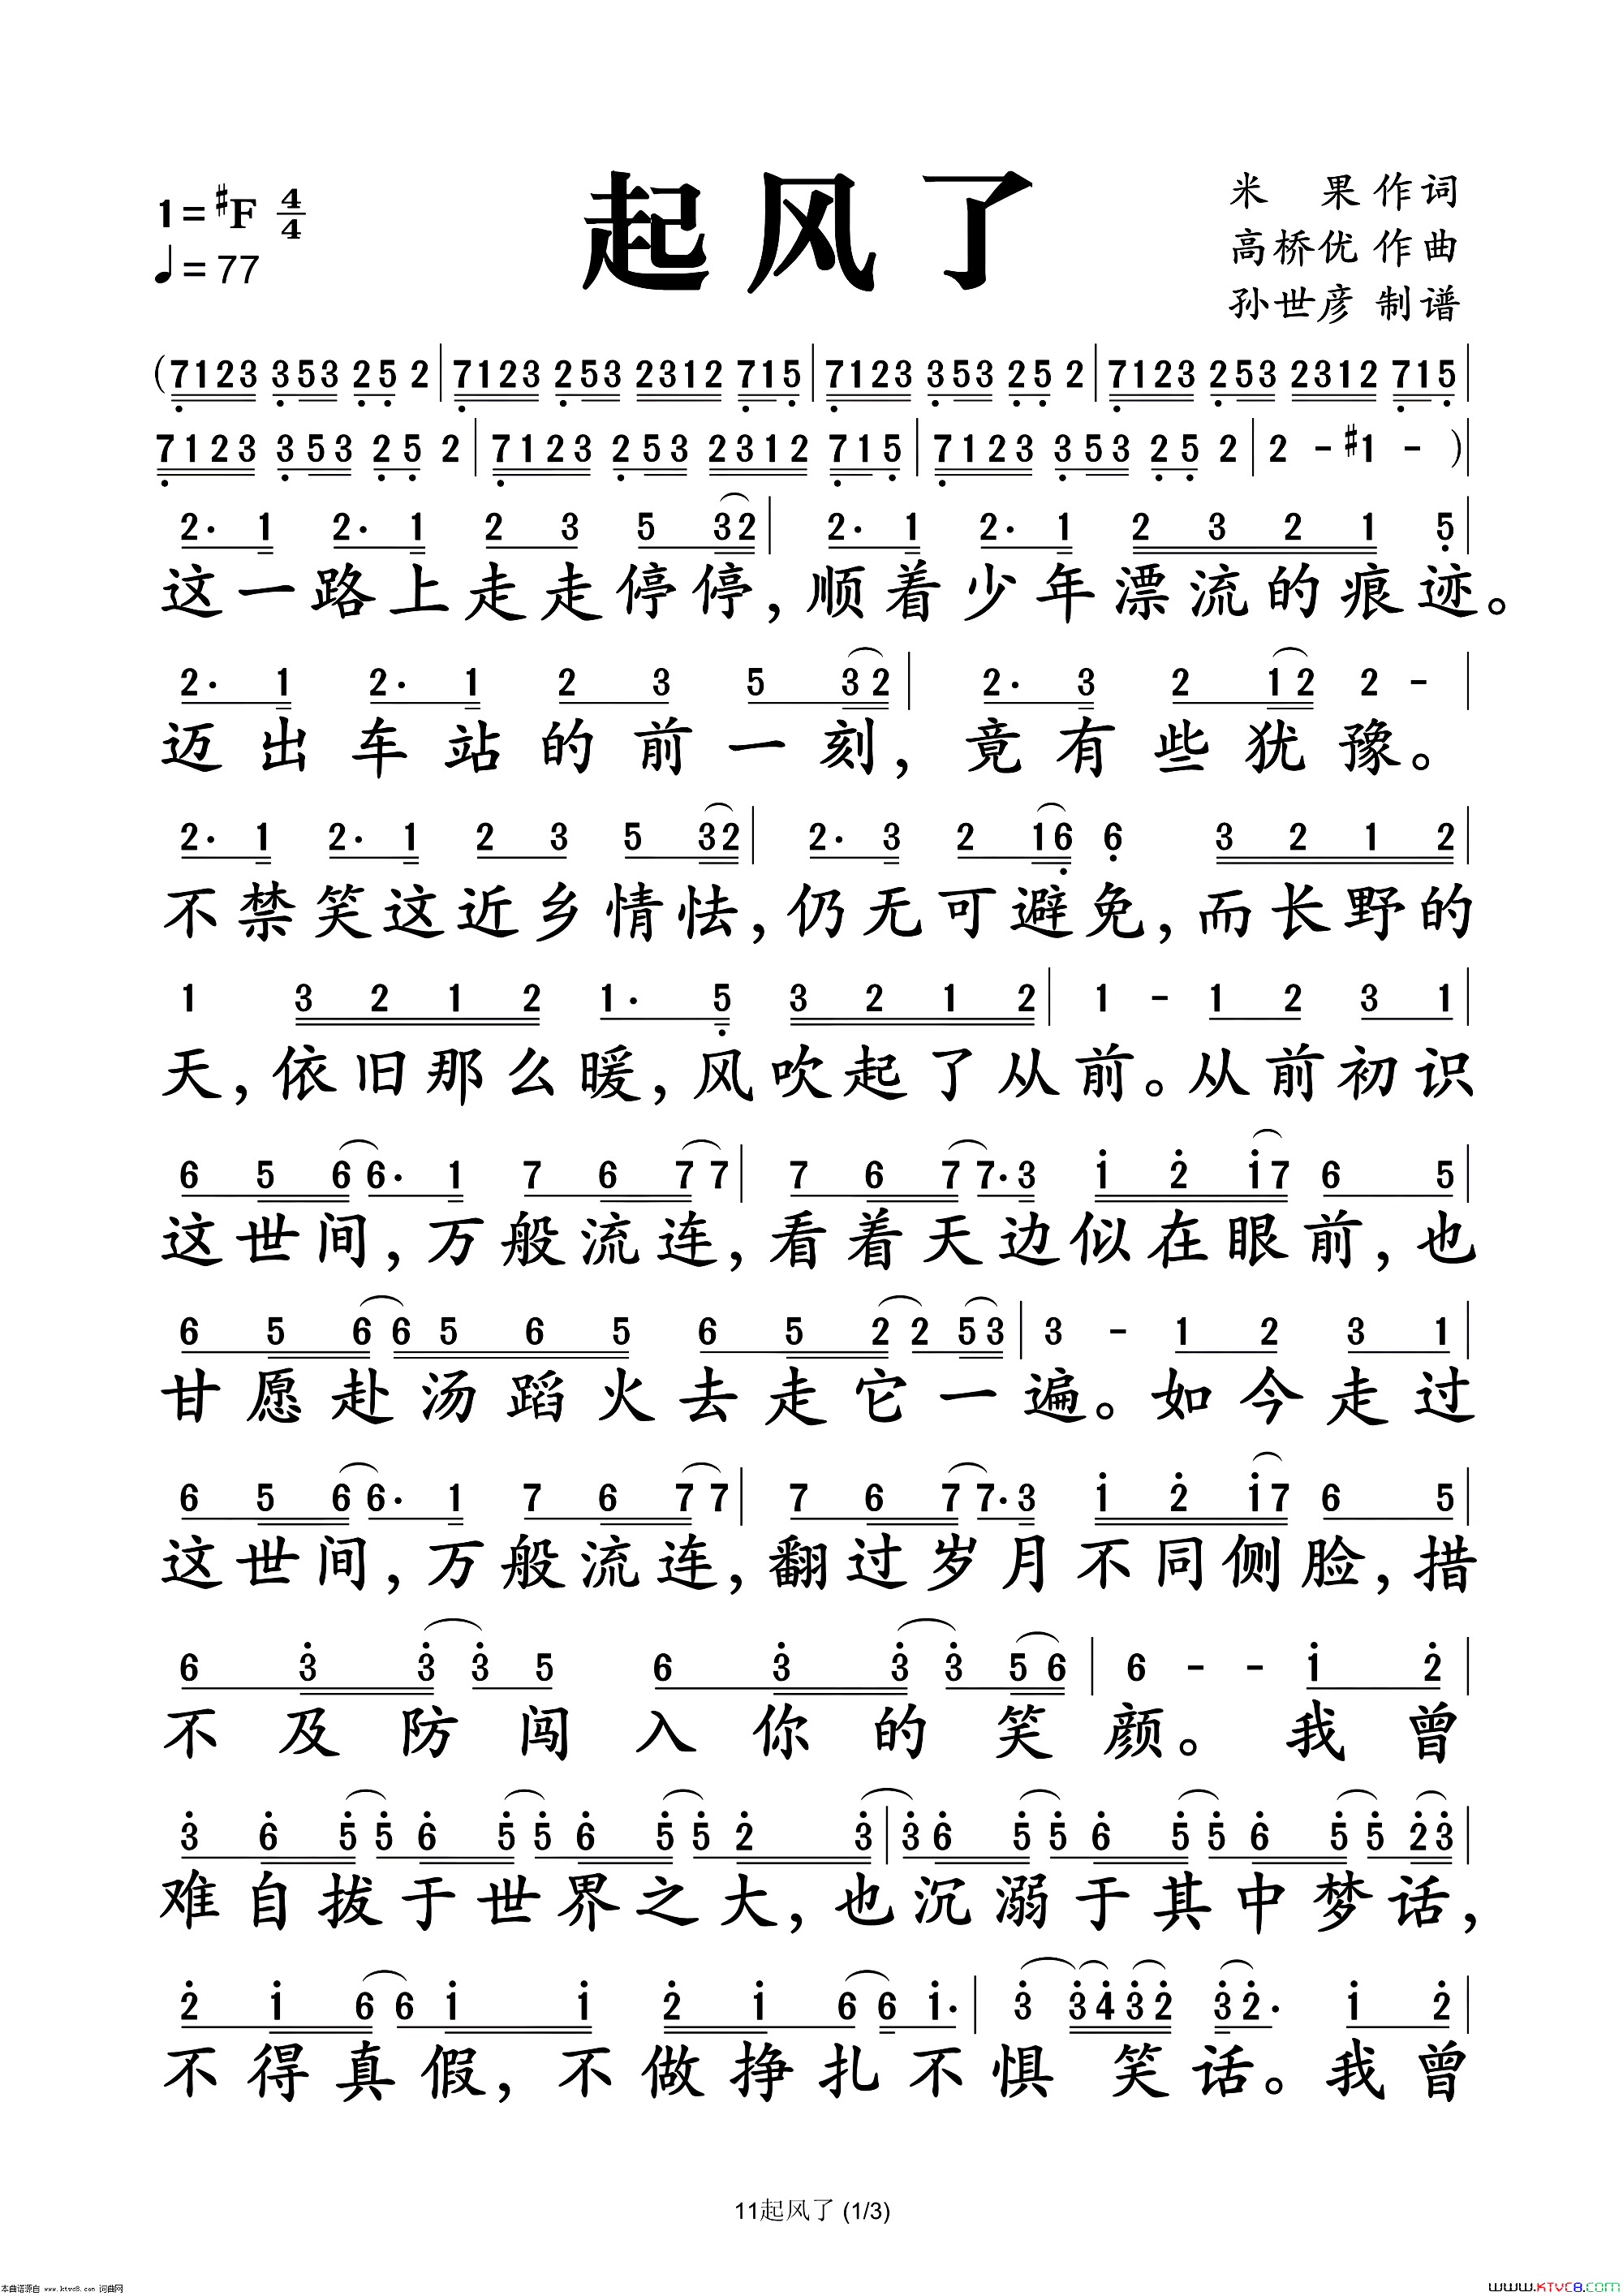 起风了
1=♯F 4/4
♩=77
米 果 作词
高桥优 作曲
孙世彦 制谱
(7123 353 25 2|7123 253 2312 715|7123 353 25 2|7123 253 2312 715|
7123 353 25 2|7123 253 2312 715|7123 353 25 2|2 - ♯1 - )|
2· 1 2· 1 2 3 5 32| 2· 1 2· 1 2 3 2 1 5|
这一路上走走停停,顺着少年漂流的痕迹。
2· 1 2· 1 2 3 5 32| 2· 3 2 12 2 - |
迈出车站的前一刻,竟有些犹豫。
2· 1 2· 1 2 3 5 32| 2· 3 2 16 6 3 2 1 2|
不禁笑这近乡情怯,仍无可避免,而长野的
1 3 2 1 2 1· 5 3 2 1 2| 1 - 1 2 3 1|
天,依旧那么暖,风吹起了从前。从前初识
6 5 66· 1 7 6 77| 7 6 77·3 1 2 17 6 5|
这世间,万般流连,看着天边似在眼前,也
6 5 66 5 6 5 6 5 22 53|3 - 1 2 3 1|
甘愿赴汤蹈火去走它一遍。如今走过
6 5 66· 1 7 6 77| 7 6 77·3 1 2 17 6 5|
这世间,万般流连,翻过岁月不同侧脸,措
6 3 33 5 6 3 33 56| 6 - - 1 2|
不及防闯入你的笑颜。我曾
3 6 55 6 55 6 55 2 3|3 6 55 6 55 6 55 23|
难自拔于世界之大,也沉溺于其中梦话,
2 1 66 1 1 2 1 66 1·| 3 3432 32· 1 2|
不得真假,不做挣扎不惧笑话。我曾
11起风了 (1/3)
本曲谱源自 www.ktvc8.com 词曲网
www.KTVC8.COM